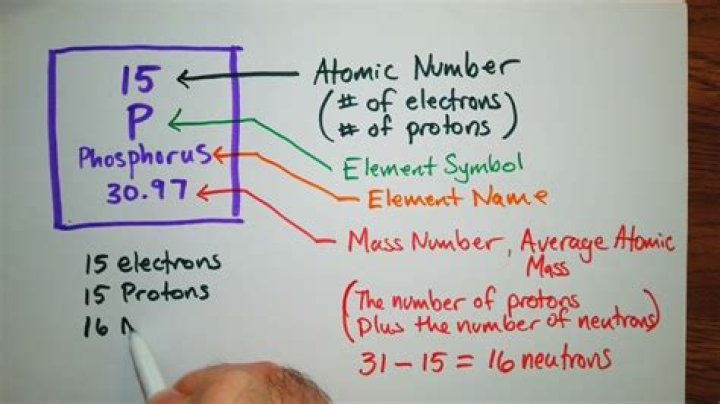 15
P
Phosphorus
30.97
Atomic Number
(# of electrons
# of protons)
Element Symbol
Element Name
Mass Number, Average Atomic
Mass
(The number of protons
Plus the number of neutrons)
31 - 15 = 16 neutrons
15 electrons
15 Protons
16 N